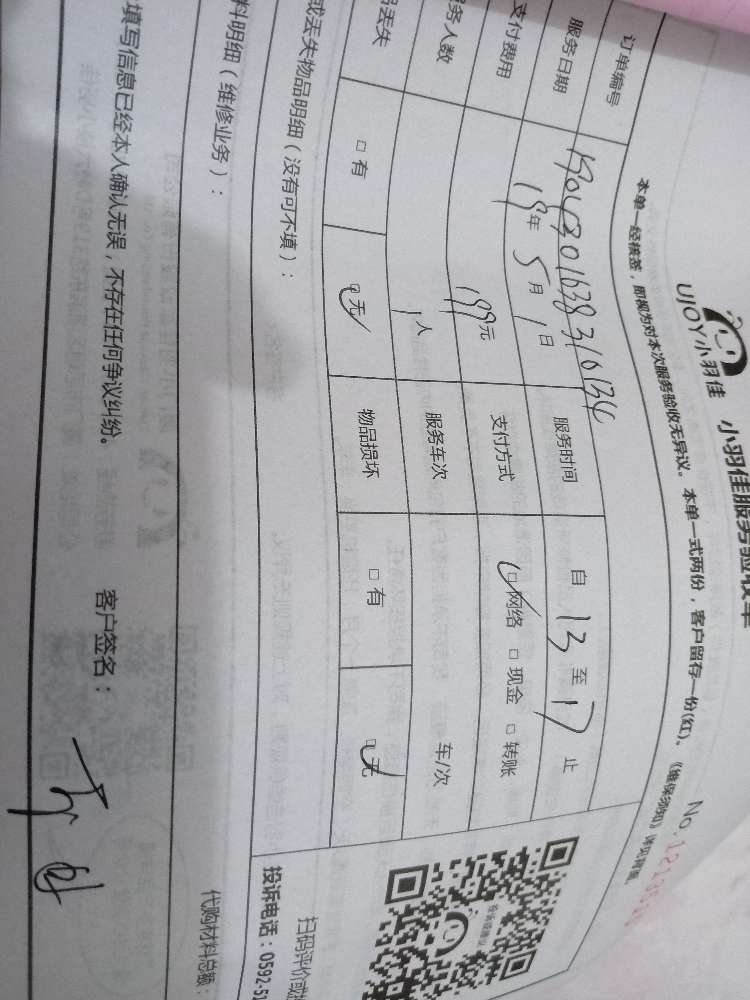 UJOY小羽佳 小羽佳服务验收单
本单一经核签，即视为对本次服务验收无异议。本单一式两份，客户留存一份(红)。《维保须知》详见背面。
No.
订单编号
服务日期 19年 5月 1日 服务时间 自 13 至 17 止
支付费用 199元 支付方式 ☑网络 □现金 □转账
务人数 1人 服务车次 车/次
丢失 □有 ☑无 物品损坏 □有 ☑无
或丢失物品明细（没有可不填）：
扫码评价或投
投诉电话：0592-51
料明细（维修业务）：
代购材料总额：
填写信息已经本人确认无误，不存在任何争议纠纷。 客户签名：